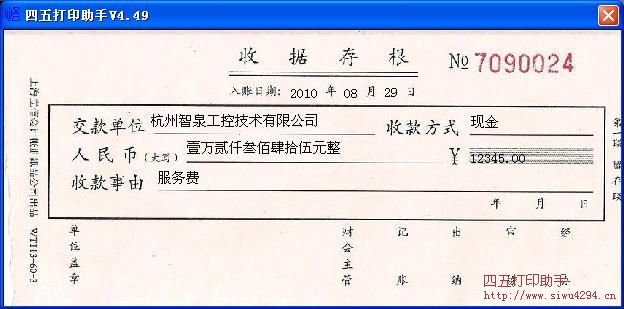 四五打印助手V4.49
收据存根
№ 7090024
入账日期: 2010 年 08 月 29 日
交款单位 杭州智泉工控技术有限公司 收款方式 现金
人民币(大写) 壹万贰仟叁佰肆拾伍元整 ¥ 12345.00
收款事由 服务费
年 月 日
单位盖章 财会主管 记账 出纳
四五打印助手
http://www.siwu4294.cn